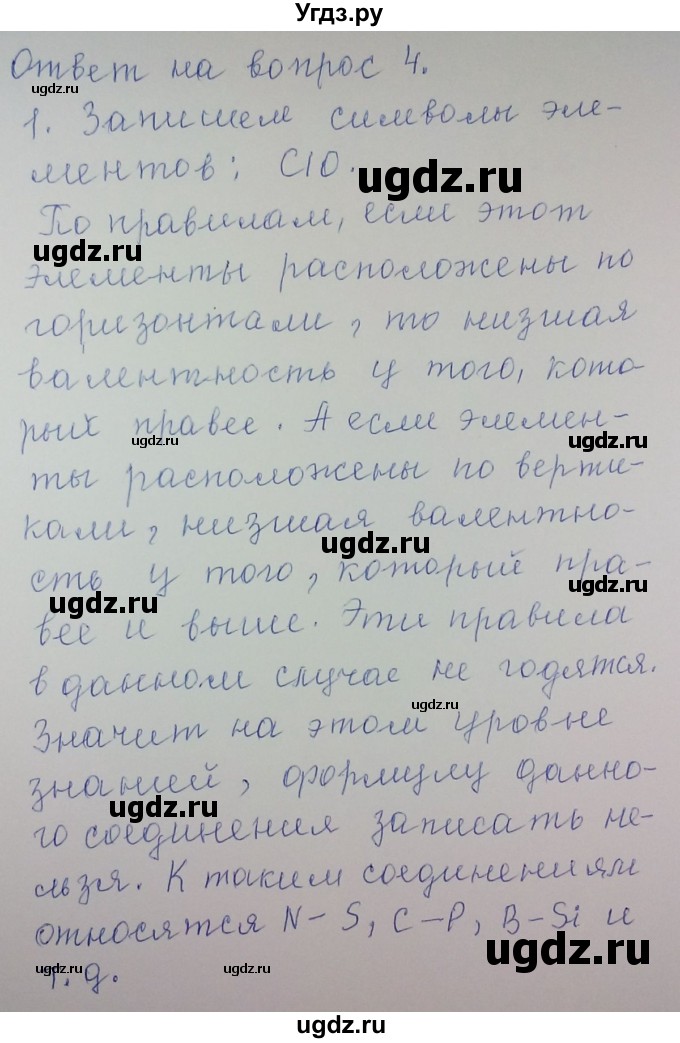 Угдз.ру
Ответ на вопрос 4.
ugdz.ru
1. Запишем символы эле-
ментов: ClO.
ugdz.ru
ugdz.ru
По правилам, если этот
ugdz.ru
элементы расположены по
горизонтали, то низшая
валентность у того, кото-
рых правее. А если элемен-
ugdz.ru
ugdz.ru
ты расположены по верти-
кали, низшая валентно-
ugdz.ru
сть у того, который пра-
ugdz.ru
ugdz.ru
вее и выше. Эти правила
в данном случае не годятся.
ugdz.ru
Значит на этом уровне
знаний, формулу данно-
ugdz.ru
го соединения записать не-
льзя. К таким соединениям
относятся N-S, C-P, B-Si и
ugdz.ru
т.д.
ugdz.ru
ugdz.ru
ugdz.ru